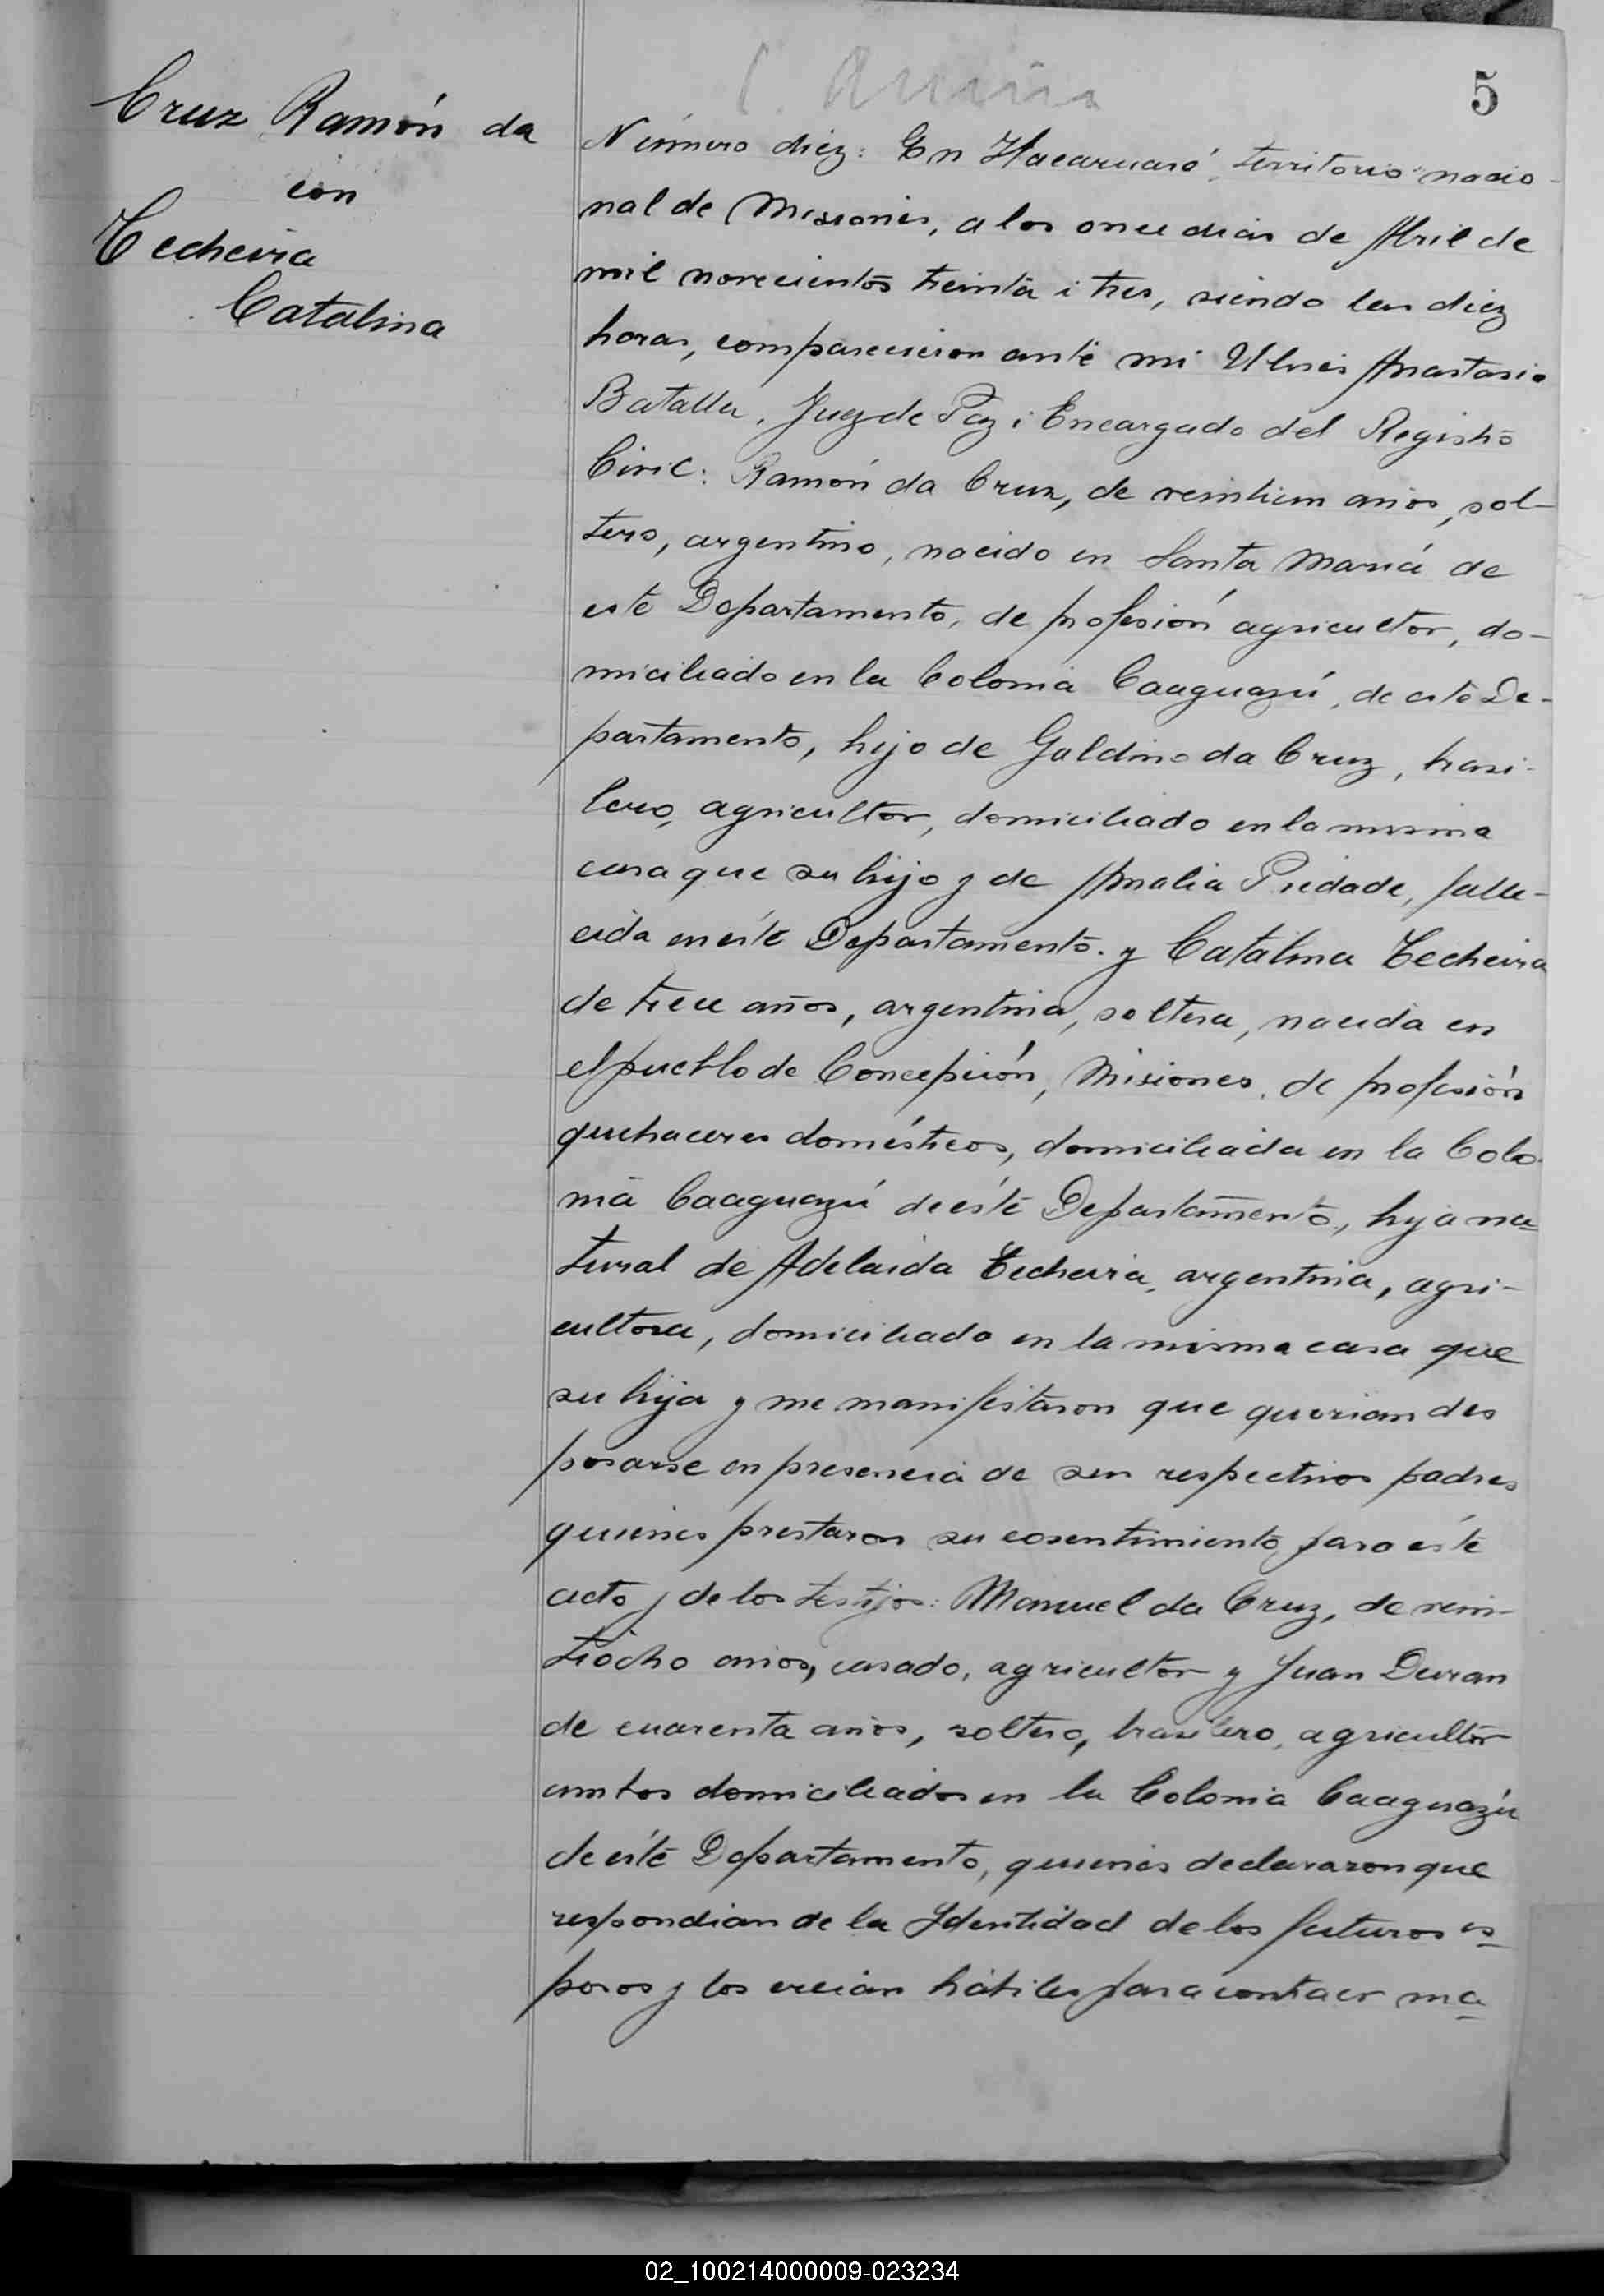 5
Cruz Ramón da
con
Techeira
Catalina
Número diez: En Itacaruaré, territorio nacio-
nal de Misiones, a los once dias de Abril de
mil novecientos treinta i tres, siendo las diez
horas, comparecieron ante mi Ulises Anastasio
Batalla, Juez de Paz i Encargado del Registro
Civil: Ramón da Cruz, de veintiun años, sol-
tero, argentino, nacido en Santa María de
este Departamento, de profesión agricultor, do-
miciliado en la Colonia Caaguazú, de este De-
partamento, hijo de Galdino da Cruz, brasi-
lero, agricultor, domiciliado en la misma
casa que su hijo y de Amalia Piedade, falle-
cida en éste Departamento. y Catalina Techeira
de trece años, argentina, soltera, nacida en
el pueblo de Concepción, Misiones, de profesión
quehaceres domésticos, domiciliada en la Colo-
nia Caaguazú de éste Departamento, hija na-
tural de Adelaida Techeira, argentina, agri-
cultora, domiciliada en la misma casa que
su hija y me manifestaron que querian des
posarse en presencia de sus respectivos padres
quienes prestaron su cosentimiento para éste
acto y de los testijos: Manuel da Cruz, de vein-
tiocho años, casado, agricultor y Juan Duran
de cuarenta años, soltero, brasilero, agricultor
ambos domiciliados en la Colonia Caaguazú
de éste Departamento, quienes declararon que
respondian de la Identidad de los futuros es
posos y los creian hábiles para contraer ma
02_100214000009-023234